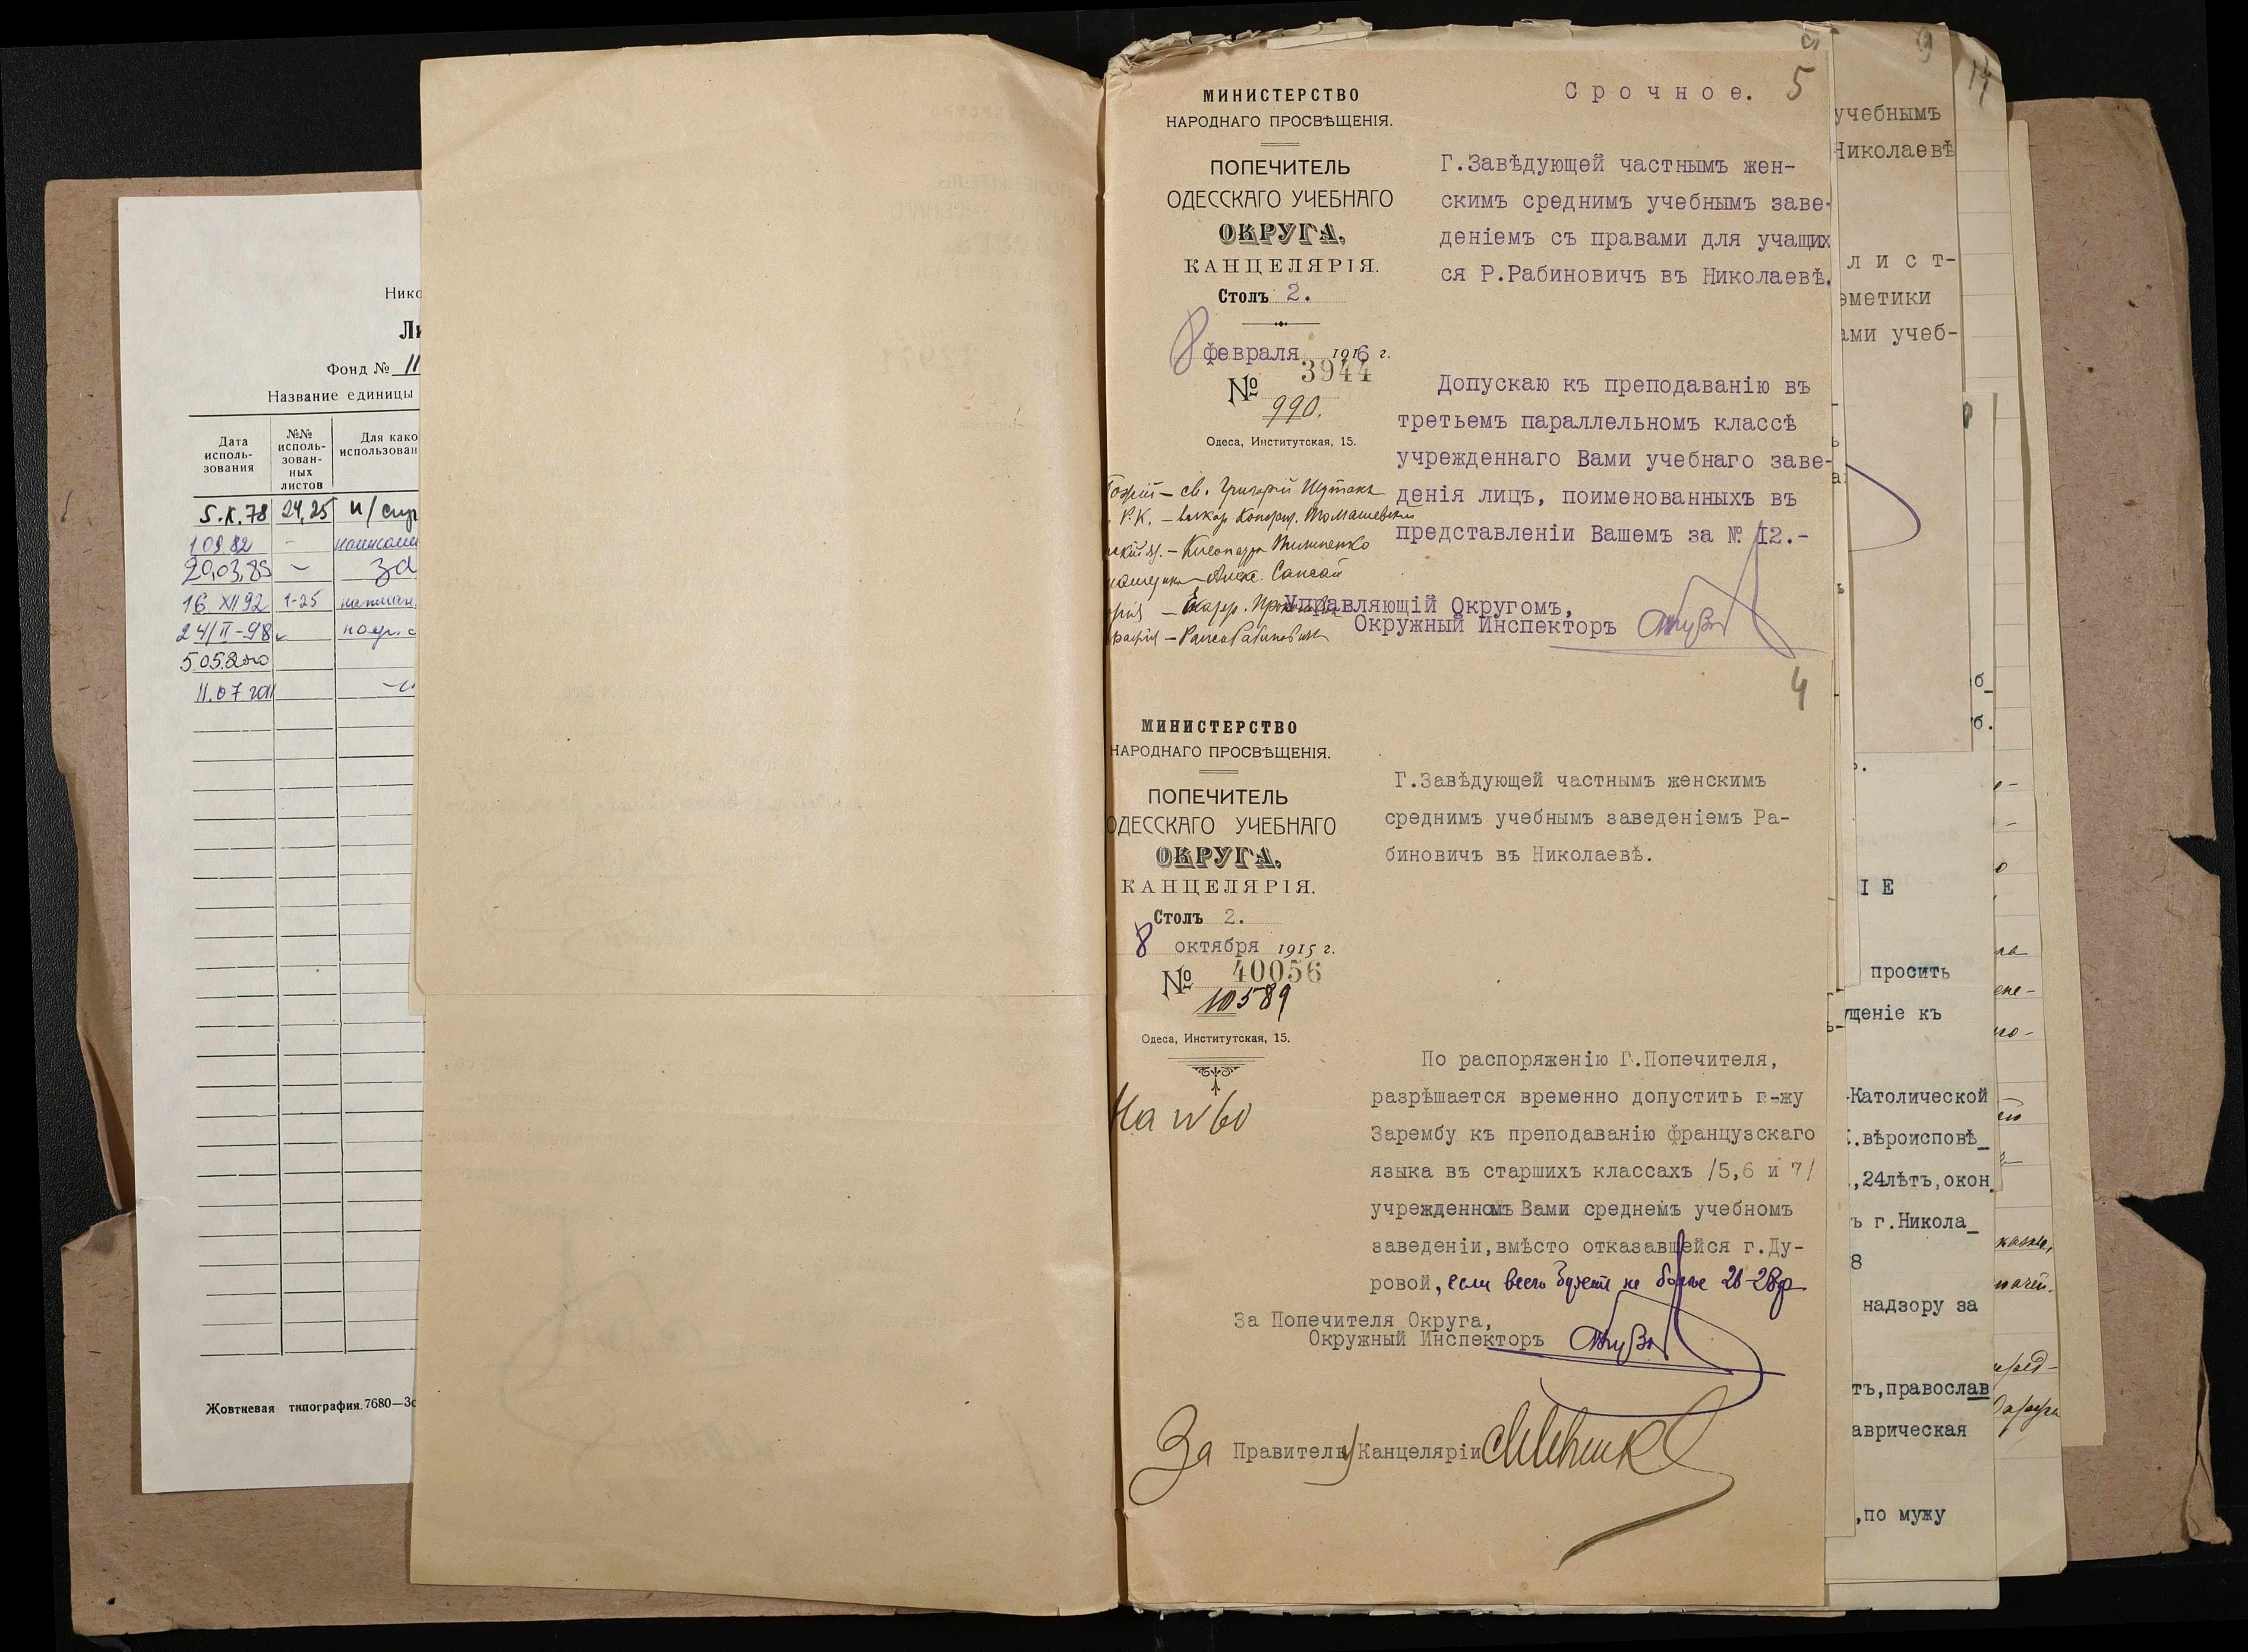 Нико
Ли
Фонд № 11
Название единицы
Дата
исполь-
зования
№№
исполь-
зован-
ных
листов
Для како
использован
5.X.78 24,25
1.09.82 -
20.03.85 -
16 XII 92 1-25
24/II-98
5.05.2000
11.07.2011
Жовтневая типография. 7680—Зс
5
Срочное.
МИНИСТЕРСТВО
НАРОДНАГО ПРОСВѢЩЕНІЯ.
ПОПЕЧИТЕЛЬ
ОДЕССКАГО УЧЕБНАГО
ОКРУГА.
КАНЦЕЛЯРІЯ.
Столъ 2.
8 февраля 1916 г.
3944
№
990.
Одеса, Институтская, 15.
Г.Завѣдующей частнымъ жен-
скимъ среднимъ учебнымъ заве-
деніемъ съ правами для учащих
ся Р.Рабиновичъ въ Николаевѣ.
Допускаю къ преподаванію въ
третьемъ параллельномъ классѣ
учрежденнаго Вами учебнаго заве-
денія лицъ, поименованныхъ въ
представленіи Вашемъ за № I2.-
— св. Григорій
Р.К. —
— Алекс. Сапсай
— Раиса Рабиновичъ
Управляющій Округомъ,
Окружный Инспекторъ
4
МИНИСТЕРСТВО
НАРОДНАГО ПРОСВѢЩЕНІЯ.
ПОПЕЧИТЕЛЬ
ОДЕССКАГО УЧЕБНАГО
ОКРУГА.
КАНЦЕЛЯРІЯ.
Столъ 2.
8 октября 1915 г.
40056
№
10589
Одеса, Институтская, 15.
На № 60
Г.Завѣдующей частнымъ женскимъ
среднимъ учебнымъ заведеніемъ Ра-
биновичъ въ Николаевѣ.
По распоряженію Г.Попечителя,
разрѣшается временно допустить г-жу
Зарембу къ преподаванію французскаго
языка въ старшихъ классахъ /5,6 и 7/
учрежденномъ Вами среднемъ учебномъ
заведеніи,вмѣсто отказавшейся г.Ду-
ровой, если всего будетъ не болѣе 26-28 р
За Попечителя Округа,
Окружный Инспекторъ
За Правителя Канцеляріи
9
14
учебнымъ
Николаевѣ
лист-
еметики
ами учеб-
б_
б.
IE
просить
ущеніе къ
-Католической
.вѣроисповѣ_
,24лѣтъ,окон
ъ г.Никола_
8
надзору за
тъ,православ
аврическая
,по мужу